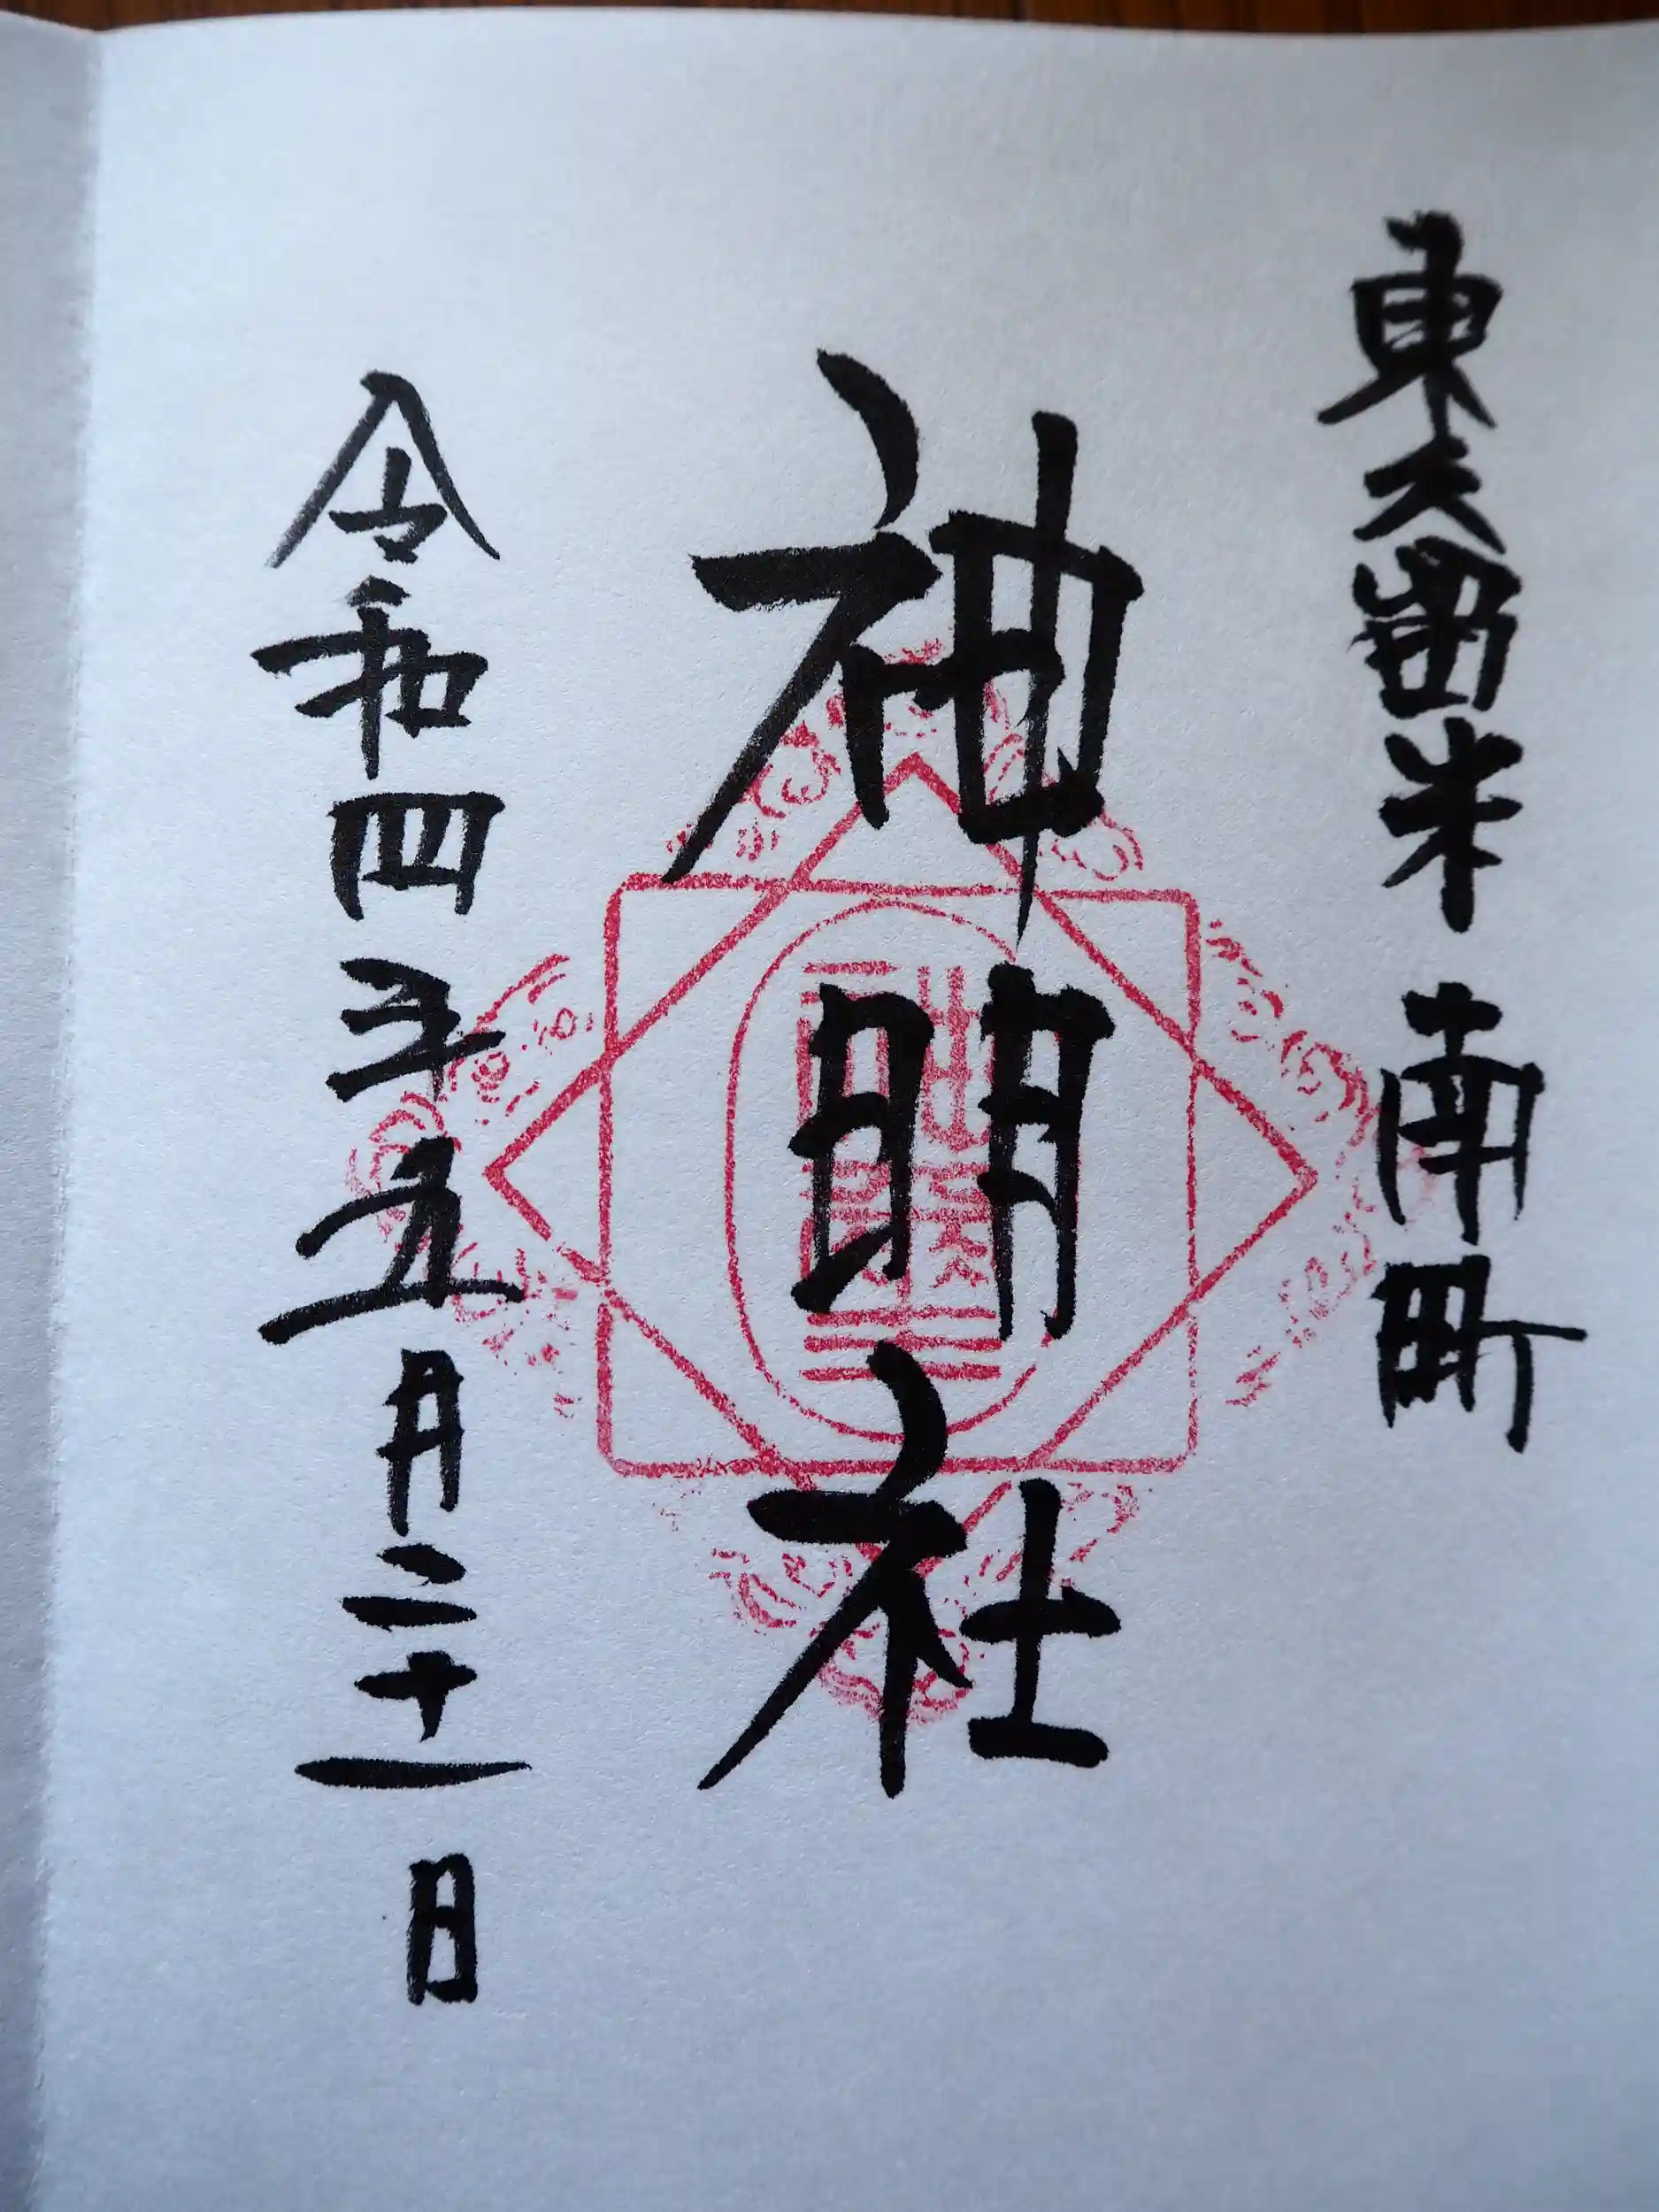 東久留米 南町
神明社
令和四年五月二十一日